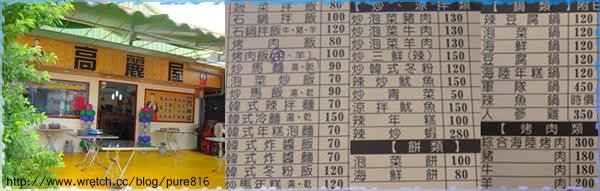 高麗屋
http://www.wretch.cc/blog/pure816
蔬菜拌飯 80
石鍋拌飯 100
石鍋拌飯牛、豬、羊 120
烤肉飯 80
烤肉飯 120
炒馬麵 湯、乾 90
泡菜炒飯 70
炒馬飯 湯、乾 90
韓式辣拌麵 70
韓式冷麵 湯、乾 150
韓式年糕泡麵 70
韓式炸醬麵 70
韓式炸醬飯 70
韓式冬粉飯 120
炒馬年糕 湯、乾 120
炒、涼拌類
炒泡菜豬肉 130
炒泡菜牛肉 130
炒泡菜羊肉 130
炒三鮮(辣) 150
炒韓式冬粉 120
炒魷魚 150
炒青菜 50
涼拌魷魚 150
辣年糕 100
辣炒蝦 280
餅類
泡菜餅 100
海鮮餅
鍋類
辣豆腐鍋 120
泡菜鍋 120
海鮮鍋 120
豆腐鍋 120
海陸年糕鍋 120
軍隊鍋 450
辣魚鍋 時價
人參雞 350
烤肉類
綜合海陸烤肉 300
豬肉 180
牛肉 180
羊肉 200